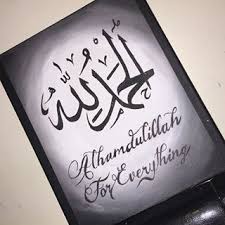 الحمد لله
Alhamdulillah
For Everything